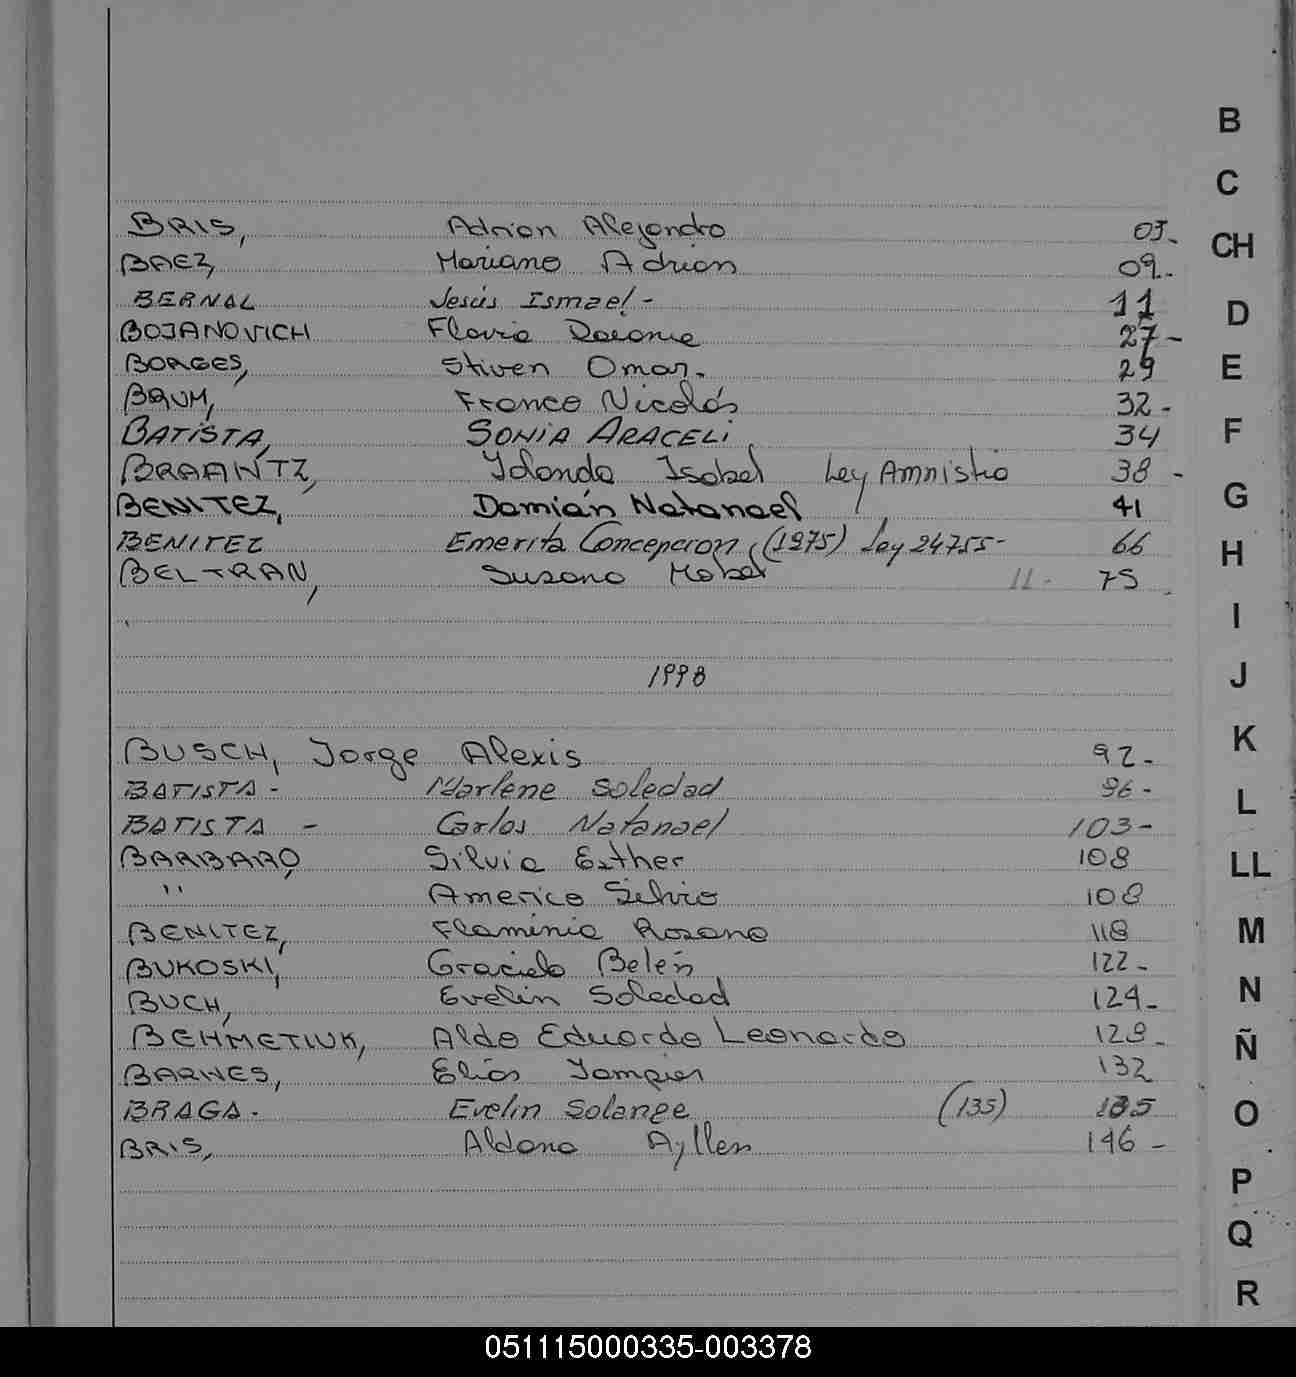 B
C
BRIS, Adrian Alejandro 03-
CH
BAEZ, Mariano Adrian 09-
BERNAL Jesús Ismael - 11
D
BOJANOVICH Flavia 27-
BORGES, Stiven Omar. 29
E
BRUM, Franco Nicolás 32-
BATISTA, SONIA ARACELI 34
F
BRAANTZ, Yolanda Isabel Ley Amnistia 38 -
BENITEZ, Damián Natanael 41
G
BENITEZ Emerita Concepcion (1975) Ley 24755- 66
H
BELTRAN, Susana Mabel 11- 75
I
1998
J
K
BUSCH, Jorge Alexis 92-
BATISTA - Marlene Soledad 96-
L
BATISTA - Carlos Natanael 103-
BARBARO, Silvia Esther 108
LL
" Americo Silvio 108
BENITEZ, Flaminia Rosana 118
M
BUKOSKI, Graciela Belén 122-
BUCH, Evelin Soledad 124-
N
BEHMETIUK, Aldo Eduardo Leonardo 128-
Ñ
BARNES, Elias 132
BRAGA- Evelin Solange (135) 135
O
BRIS, Aldana Ayllen 146-
P
Q
R
051115000335-003378